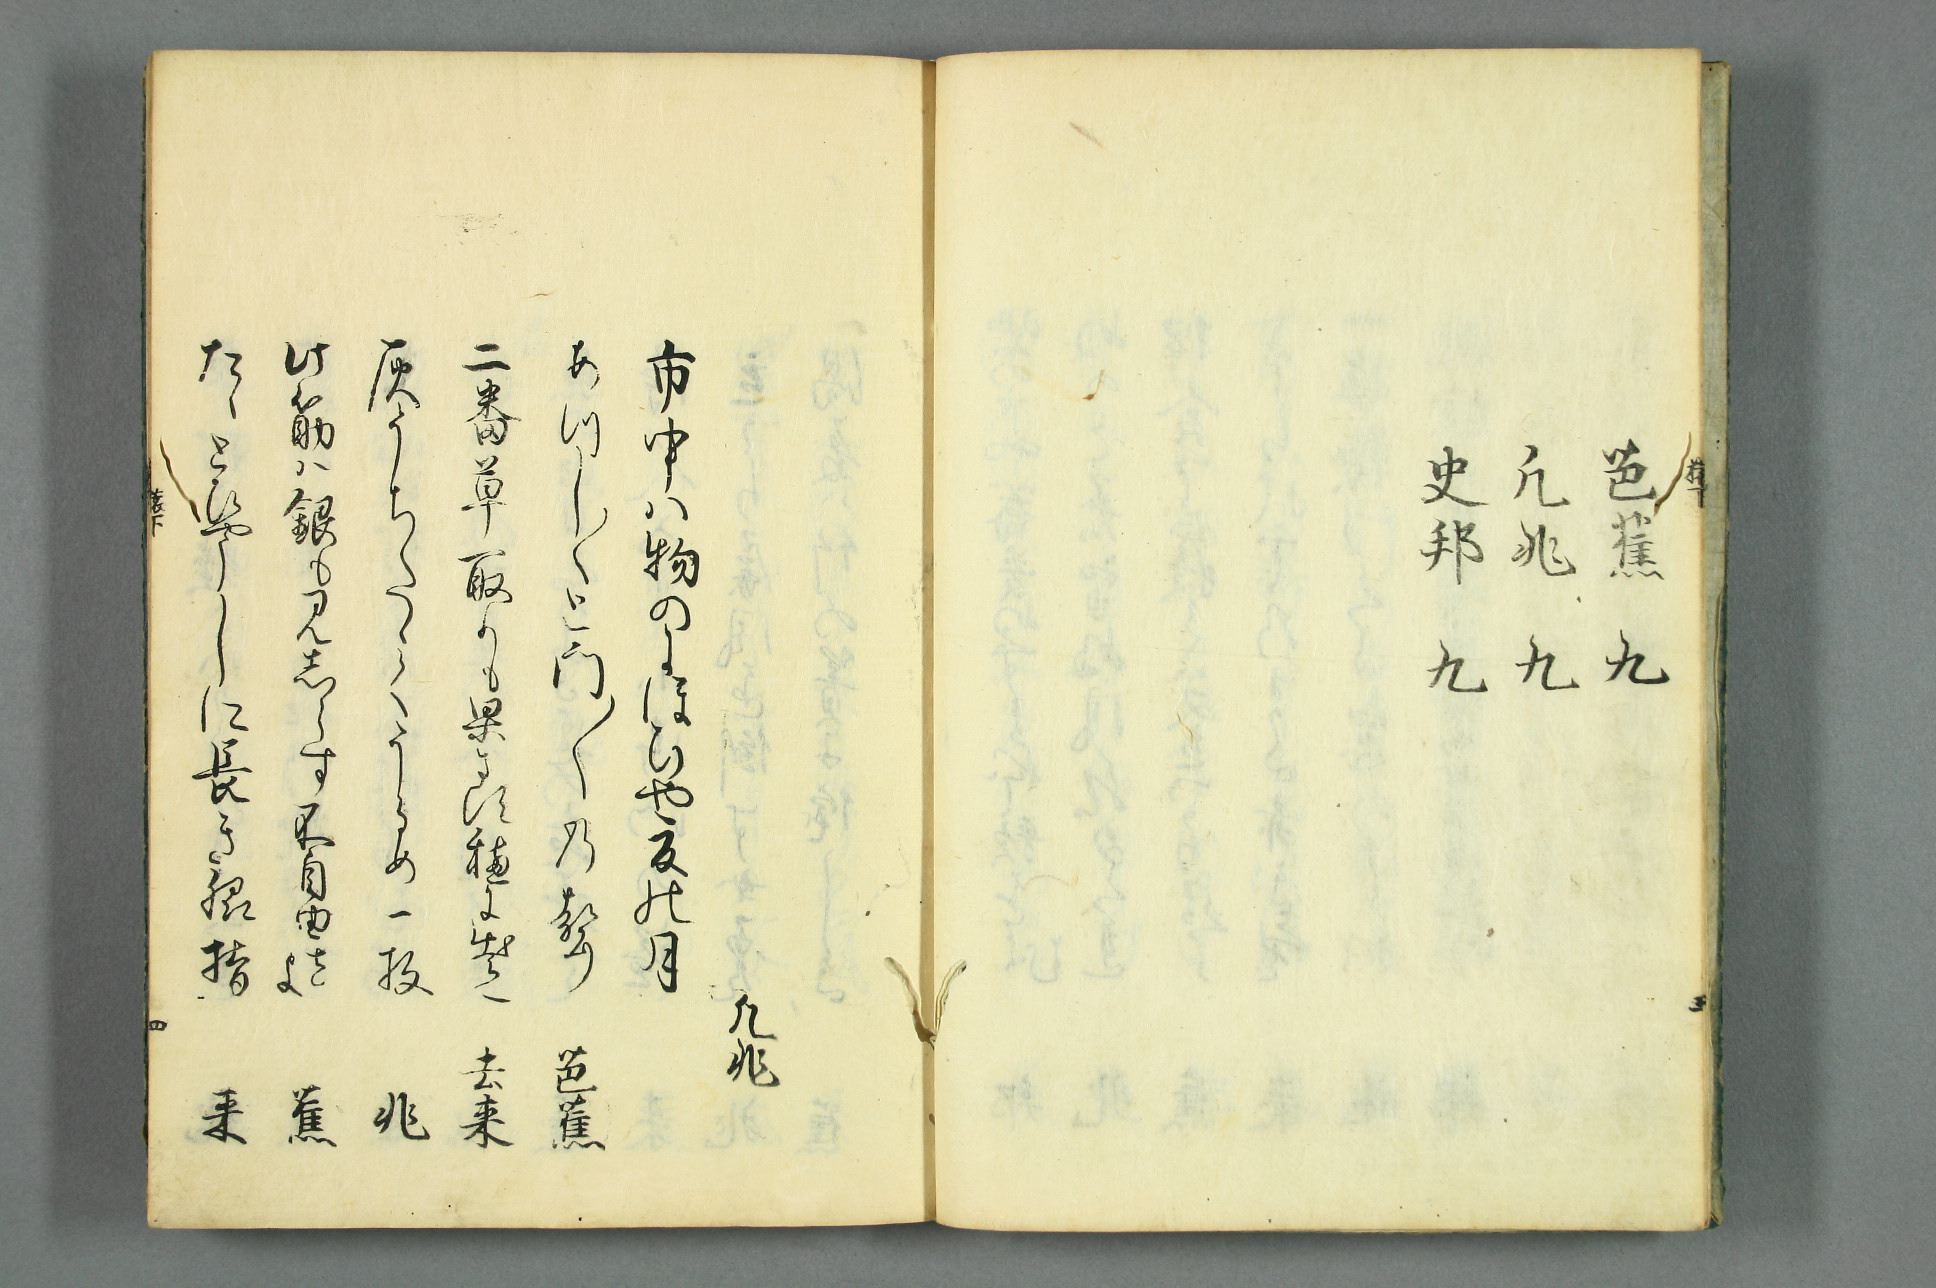 芭蕉　九
凡兆　九
史邦　九
猿下
三
凡兆
市中ハ物のにほひや夏の月
あつし／＼と門／＼の聲　芭蕉
二番草取りも果さず穂に出て　去来
灰うちたゝくうるめ一枚　兆
此筋ハ銀も見しらず不自由さよ　蕉
たゝとひやうしに長き脇指　来
猿下
四